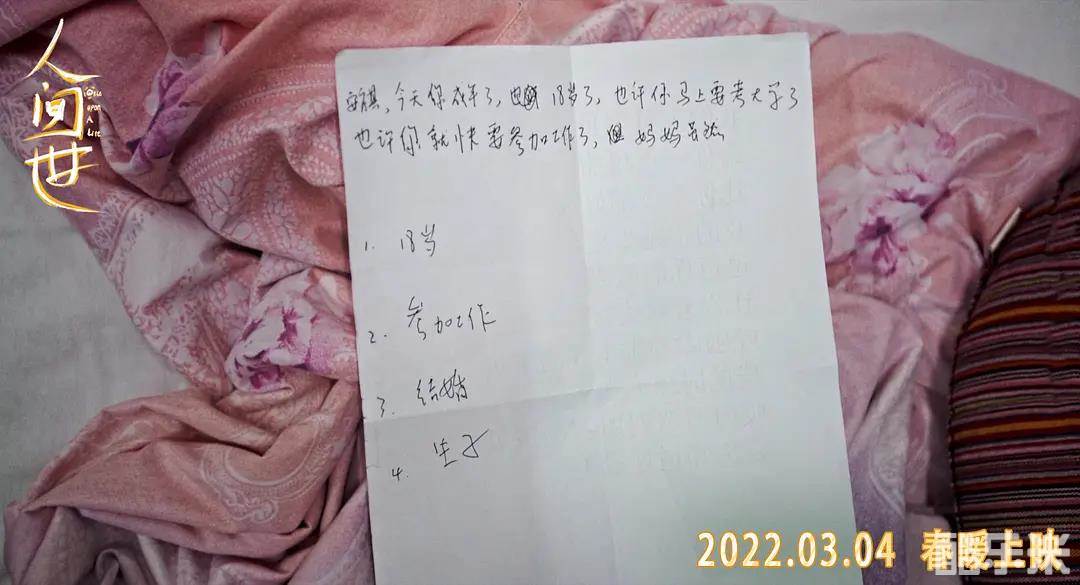 人间世
Once
upon
A
Life
安祺，今天你成年了，18岁了，也许你马上要考大学了
也许你就快要参加工作了，但妈妈
1. 18岁
2. 参加工作
3. 结婚
4. 生子
2022.03.04 春暖上映